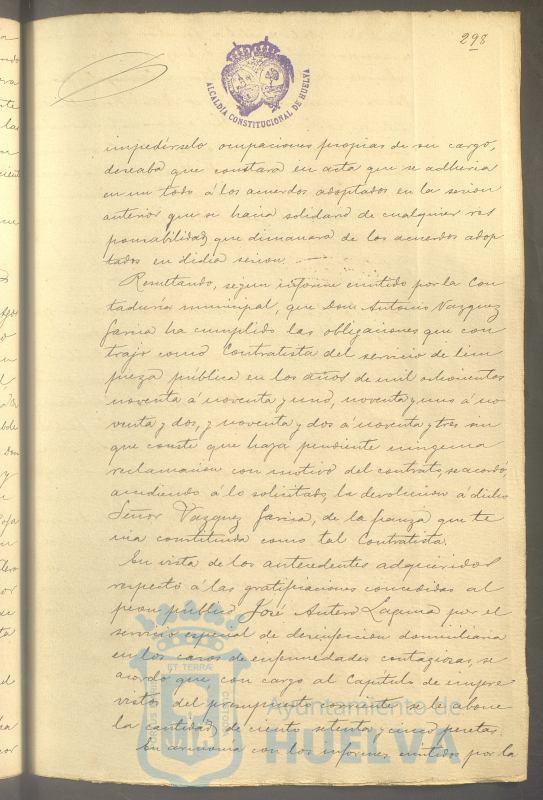 298
ALCALDÍA CONSTITUCIONAL DE HUELVA
impedirselo ocupaciones propias de su cargo,
deseaba que constara en acta que se adheria
en un todo á los acuerdos adoptados en la sesion
anterior que se hacia solidario de cualquier res
ponsabilidad que dimanara de los acuerdos adop
tados en dicha sesion.
Resultando, segun informe emitido por la Con
taduria municipal, que Don Antonio Vazquez
Garcia ha cumplido las obligaciones que con
trajo como Contratista del servicio de lim
pieza pública en los años de mil ochocientos
noventa á noventa y uno, noventa y uno á no
venta y dos, y noventa y dos á noventa y tres sin
que conste que haya pendiente ninguna
reclamacion con motivo del contrato, se acordó,
accediendo á lo solicitado, la devolucion á dicho
Señor Vazquez Garcia, de la fianza que te
nia constituida como tal Contratista.
En vista de los antecedentes adquiridos
respecto á las gratificaciones concedidas al
peon público José Antero Laguna por el
servicio especial de desinfeccion domiciliaria
en los casos de enfermedades contagiosas, se
acordó que con cargo al Capitulo de impre
vistos del presupuesto corriente se le abone
la cantidad de ciento setenta y cinco pesetas.
En armonia con los informes emitidos por la
Ayuntamiento de
HUELVA